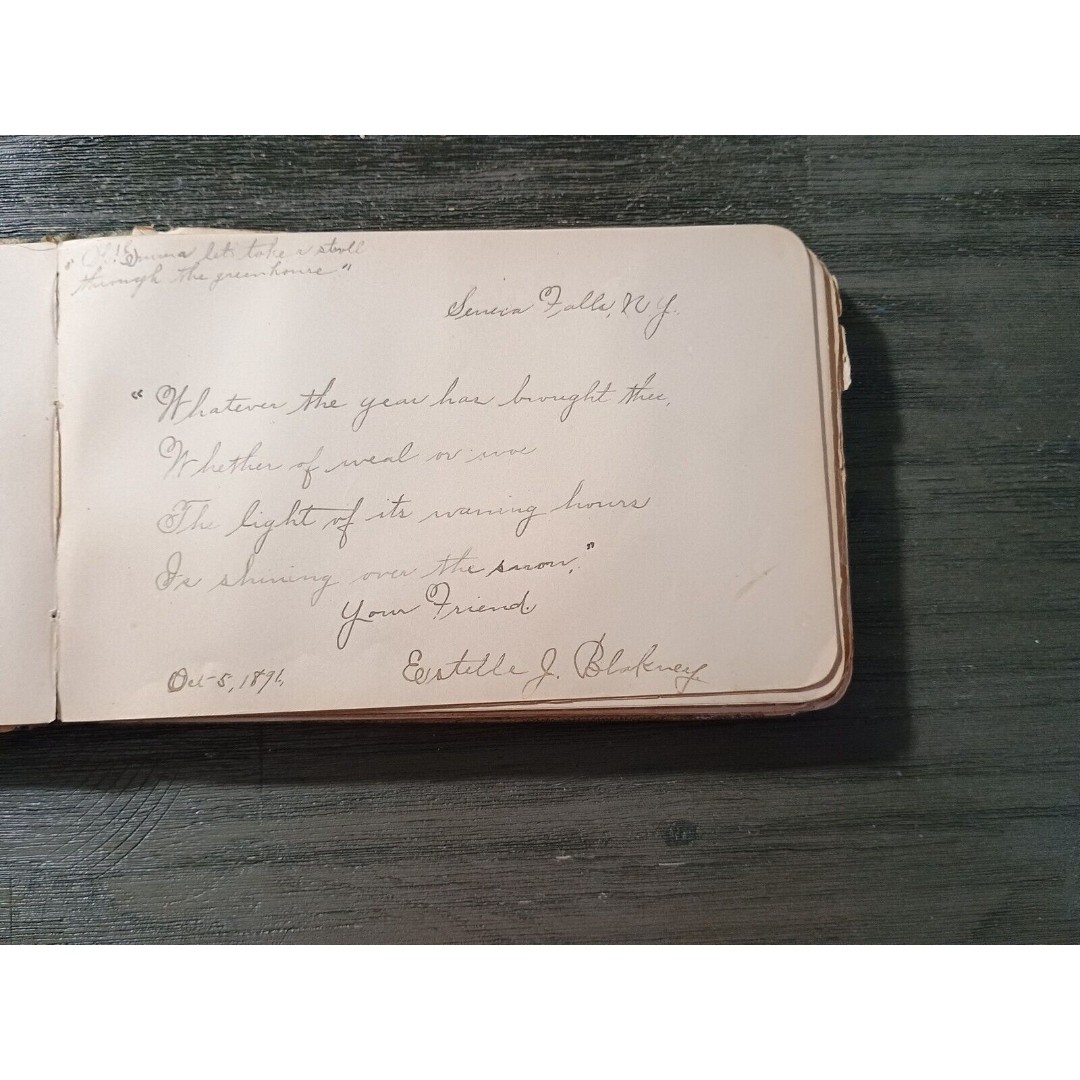 "Oh! Emma let's take a stroll
through the greenhouse"
Seneca Falls, N.Y.
"Whatever the year has brought thee,
Whether of weal or woe
The light of its waning hours
Is shining over the snow,"
Your Friend.
Estelle J. Blakney
Oct-5, 1891,